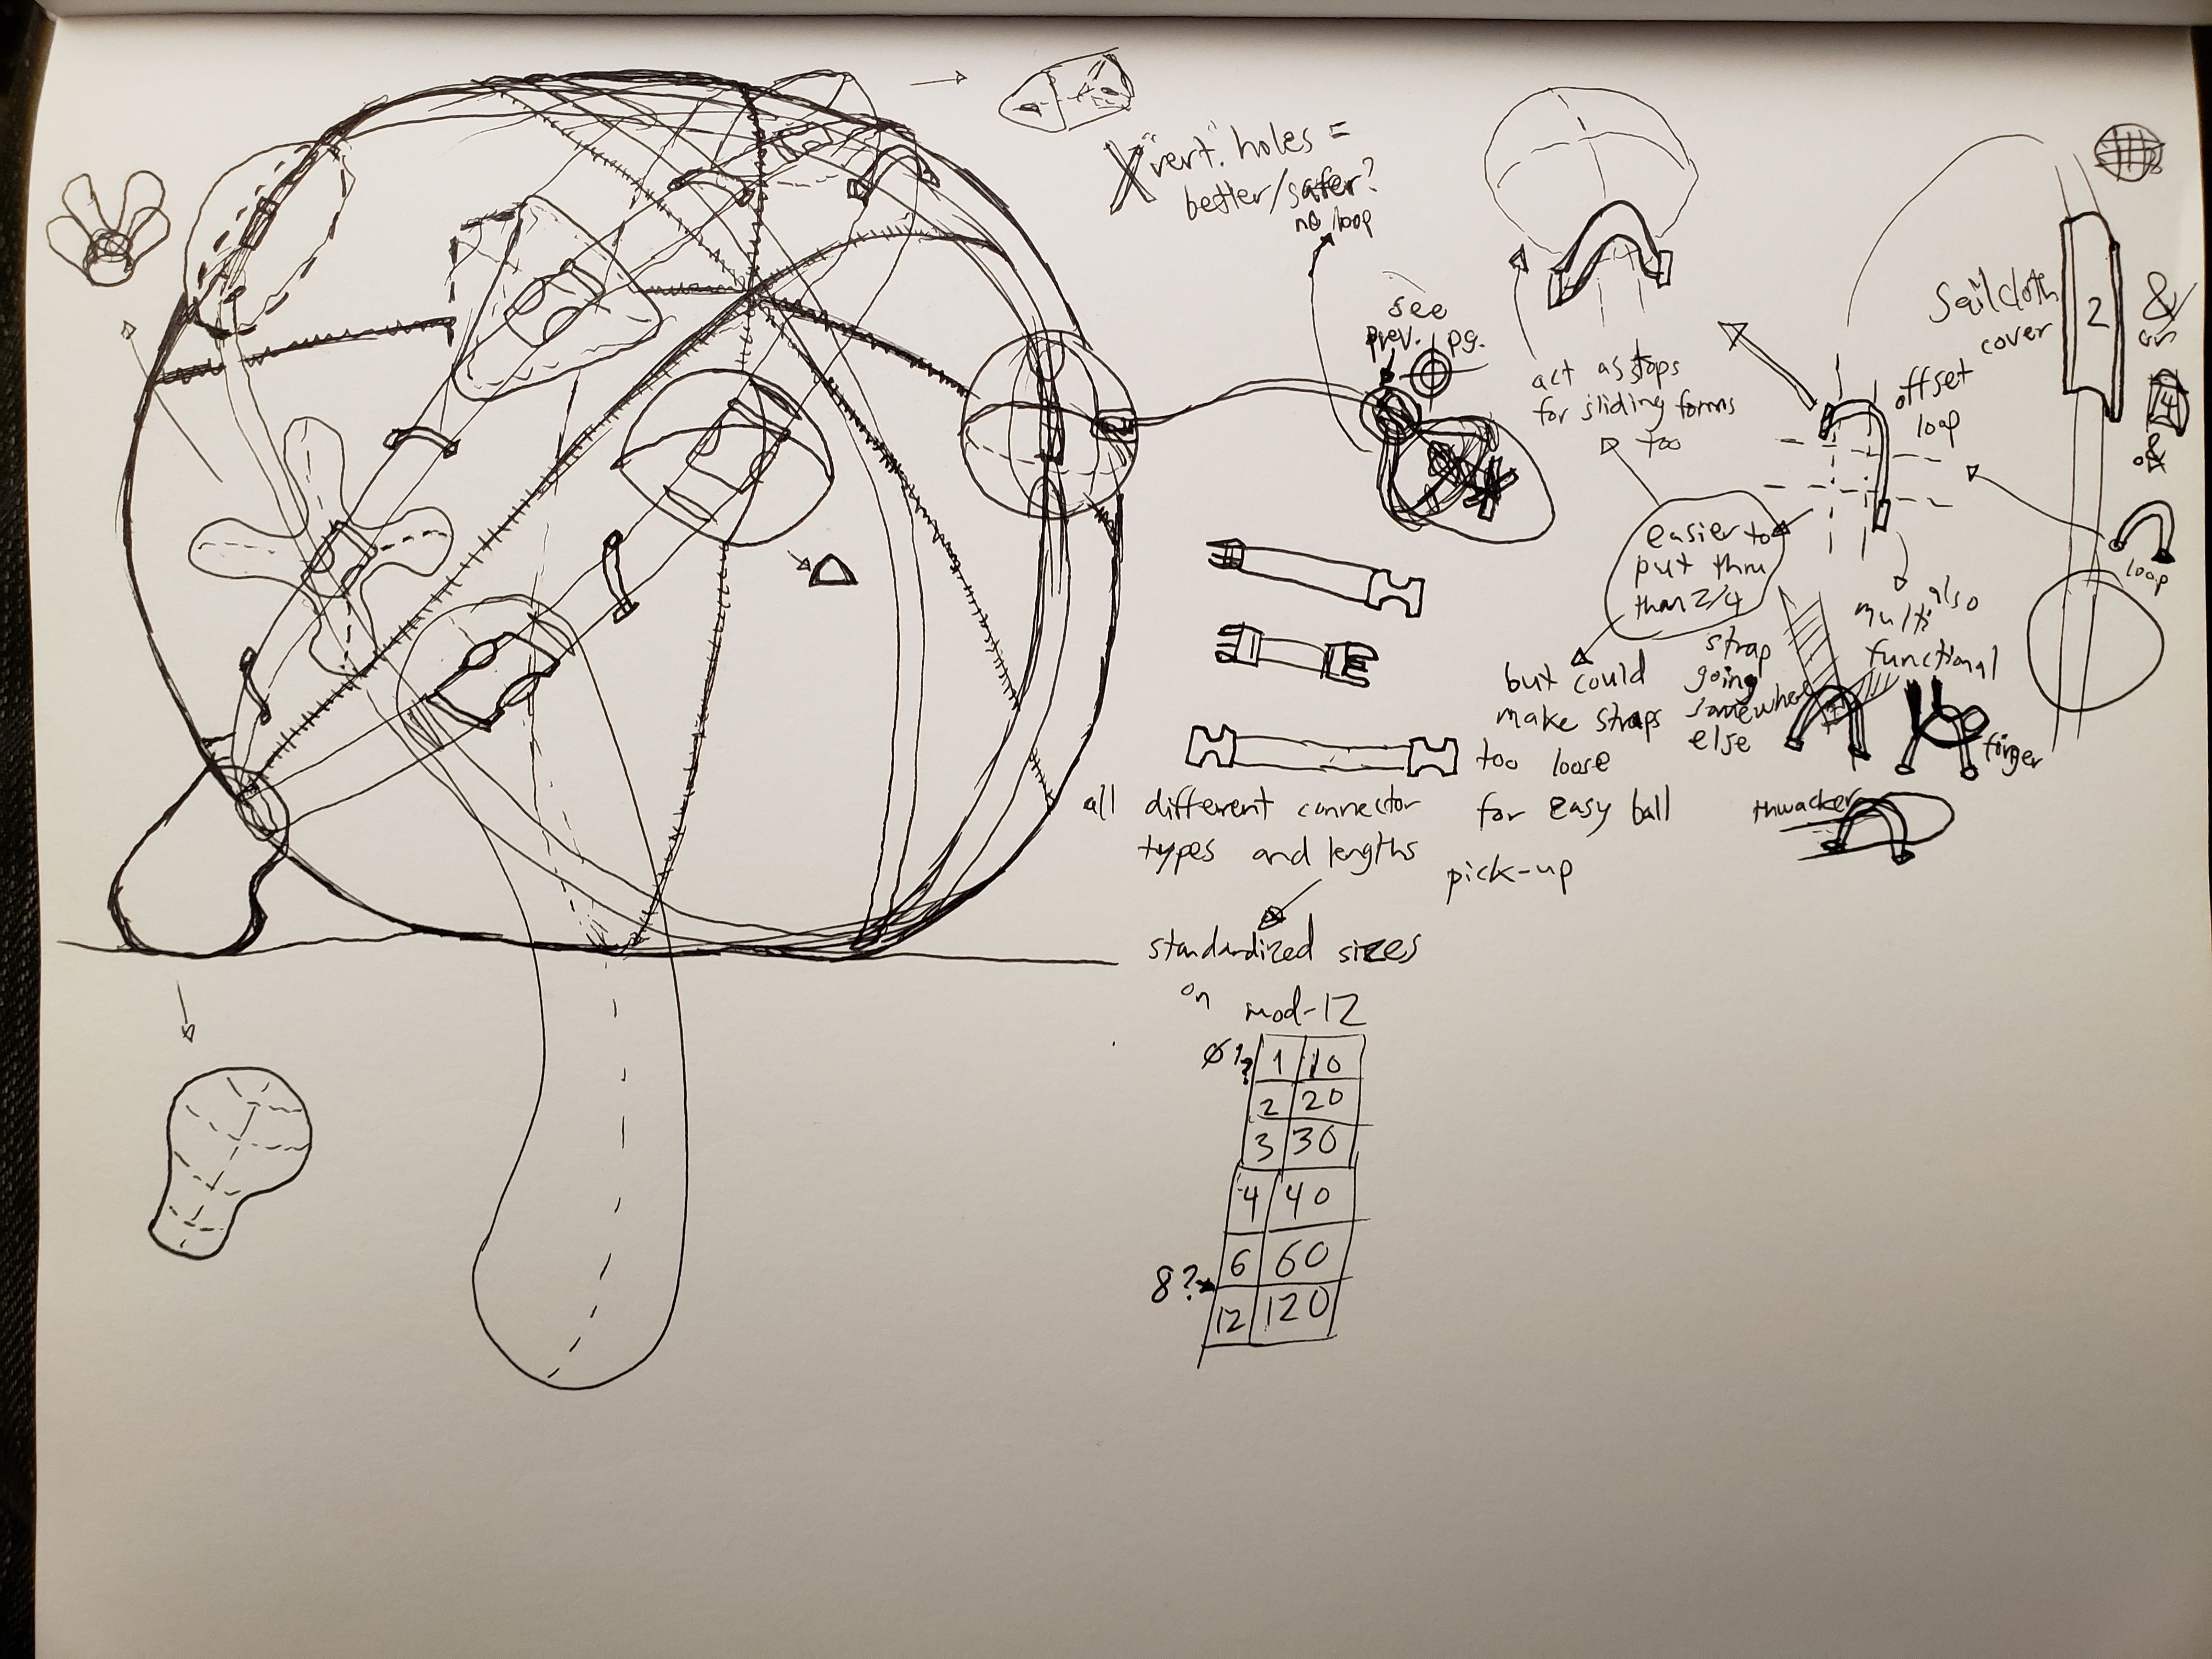 X "vert." holes =
better/safer?
no loop
see
prev. pg.
act as stops
for sliding forms
too
Sailcloth
cover
2
&
4
&
offset
loop
loop
easier to
put thru
than 2/4
also
multi
functional
strap
going
somewhere
else
finger
thwacker
but could
make straps
too loose
for easy ball
pick-up
all different connector
types and lengths
standardized sizes
on mod-12
Ø!? 1 10
2 20
3 30
4 40
6 60
8?
12 120